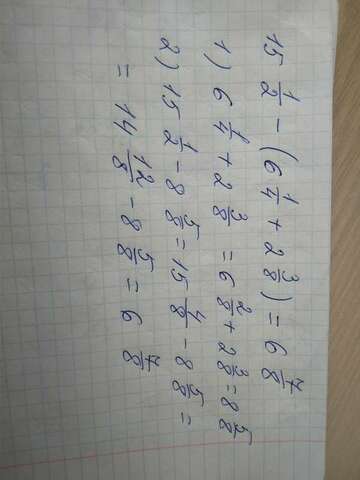 15 1/2 - (6 1/4 + 2 3/8) = 6 7/8
1) 6 1/4 + 2 3/8 = 6 2/8 + 2 3/8 = 8 5/8
2) 15 1/2 - 8 5/8 = 15 4/8 - 8 5/8 =
= 14 12/8 - 8 5/8 = 6 7/8